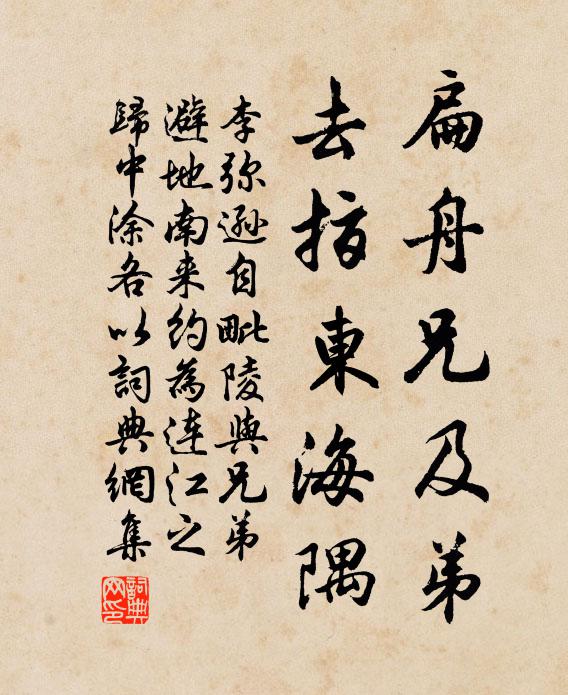 扁舟兄及弟
去指東海隅
李弥遜自毗陵與兄弟
避地南来約為连江之
歸中涂各以詞典網集
詞典網印